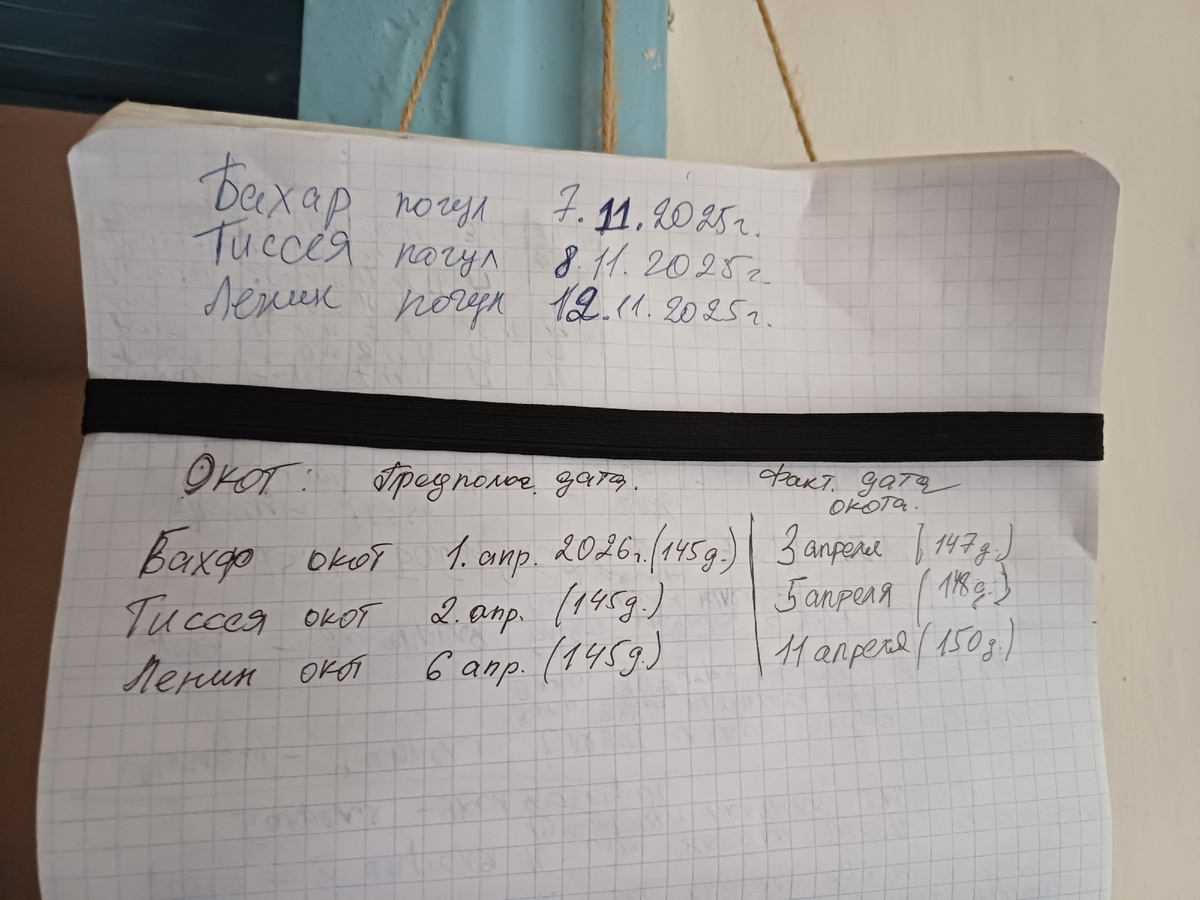 Бахар погул 7.11.2025г.
Тиссея погул 8.11.2025г.
Ленин погул 12.11.2025г.
Окот: Предполог. дата. Факт. дата
окота.
Бахар окот 1. апр. 2026г. (145д.) 3 апреля (147д.)
Тиссея окот 2. апр. (145д.) 5 апреля (148д.)
Ленин окот 6 апр. (145д.) 11 апреля (150д.)